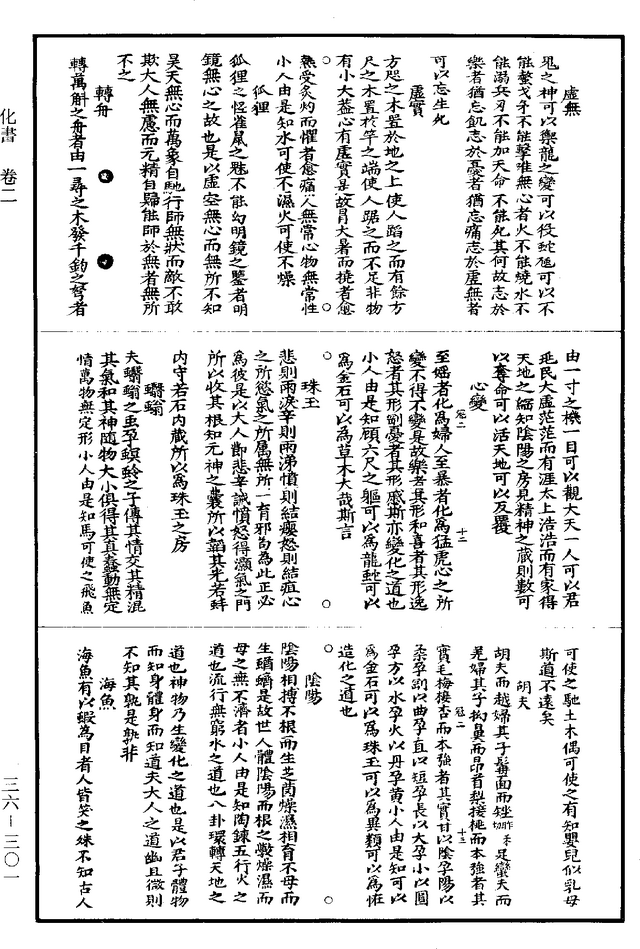 化書　卷二
三六－三〇一
虛無
鬼之神可以禦龍之變可以役蛇虺可以不
能螫戈矛不能擊唯無心者火不能燒水不
能溺兵刃不能加天命不能死其何故志於
樂者猶忘飢志於憂者猶忘痛志於虛無者
可以忘生死
虛實
方咫之木置於地之上使人蹈之而有餘方
尺之木置於竿之端使人踞之而不足非物
有小大蓋心有虛實是故冒大暑而撓者愈
熱受炙灼而懼者愈痛人無常心物無常性
小人由是知水可使不濕火可使不燥
狐狸
狐狸之怪雀鼠之魅不能幻明鏡之鑒者明
鏡無心之故也是以虛空無心而無所不知
昊天無心而萬象自馳行師無狀而敵不敢
欺大人無慮而元精自歸能師於無者無所
不之
轉舟
轉萬斛之舟者由一尋之木發千鈞之弩者
由一寸之機一目可以觀大天一人可以君
兆民大虛茫茫而有涯太上浩浩而有家得
天地之綱知陰陽之房見精神之藏則數可
以奪命可以活天地可以反覆
心變
至婬者化為婦人至暴者化為猛虎心之所
變不得不變是故樂者其形和喜者其形逸
怒者其形剛憂者其形慼斯亦變化之道也
小人由是知顧六尺之軀可以為龍虵可以
為金石可以為草木大哉斯言
珠玉
悲則雨淚辛則雨涕憤則結癭怒則結疽心
之所慾氣之所屬無所一育邪苟為此正必
為彼是以大人節悲辛誡憤怒得灝氣之門
所以收其根知元神之囊所以韜其光若蚌
內守若石內藏所以為珠玉之房
蠮螉
夫蠮螉之虫孕螟蛉之子傳其情交其精混
其氣和其神隨物大小俱得其真蠢動無定
情萬物無定形小人由是知馬可使之飛魚
可使之馳土木偶可使之有知嬰兒似乳母
斯道不遠矣
胡夫
胡夫而越婦其子髯面而矬足蠻夫而
羌婦其子拗鼻而昂首梨接桃而本強者其
實毛梅接杏而本強者其實甘以陰孕陽以
柔孕剛以曲孕直以短孕長以大孕小以圓
孕方以水孕火以丹孕黃小人由是知可以
為金石可以為珠玉可以為異類可以為恠
造化之道也
陰陽
陰陽相搏不根而生芝菌燥濕相育不母而
生蝤蠐是故世人體陰陽而根之斆燥濕而
母之無不濟者小人由是知陶鍊五行火之
道也流行無窮水之道也八卦環轉天地之
道也神物乃生變化之道也是以君子體物
而知身體身而知道夫大人之道幽且微則
不知其孰是孰非
海魚
海魚有以蝦為目者人皆笑之殊不知古人